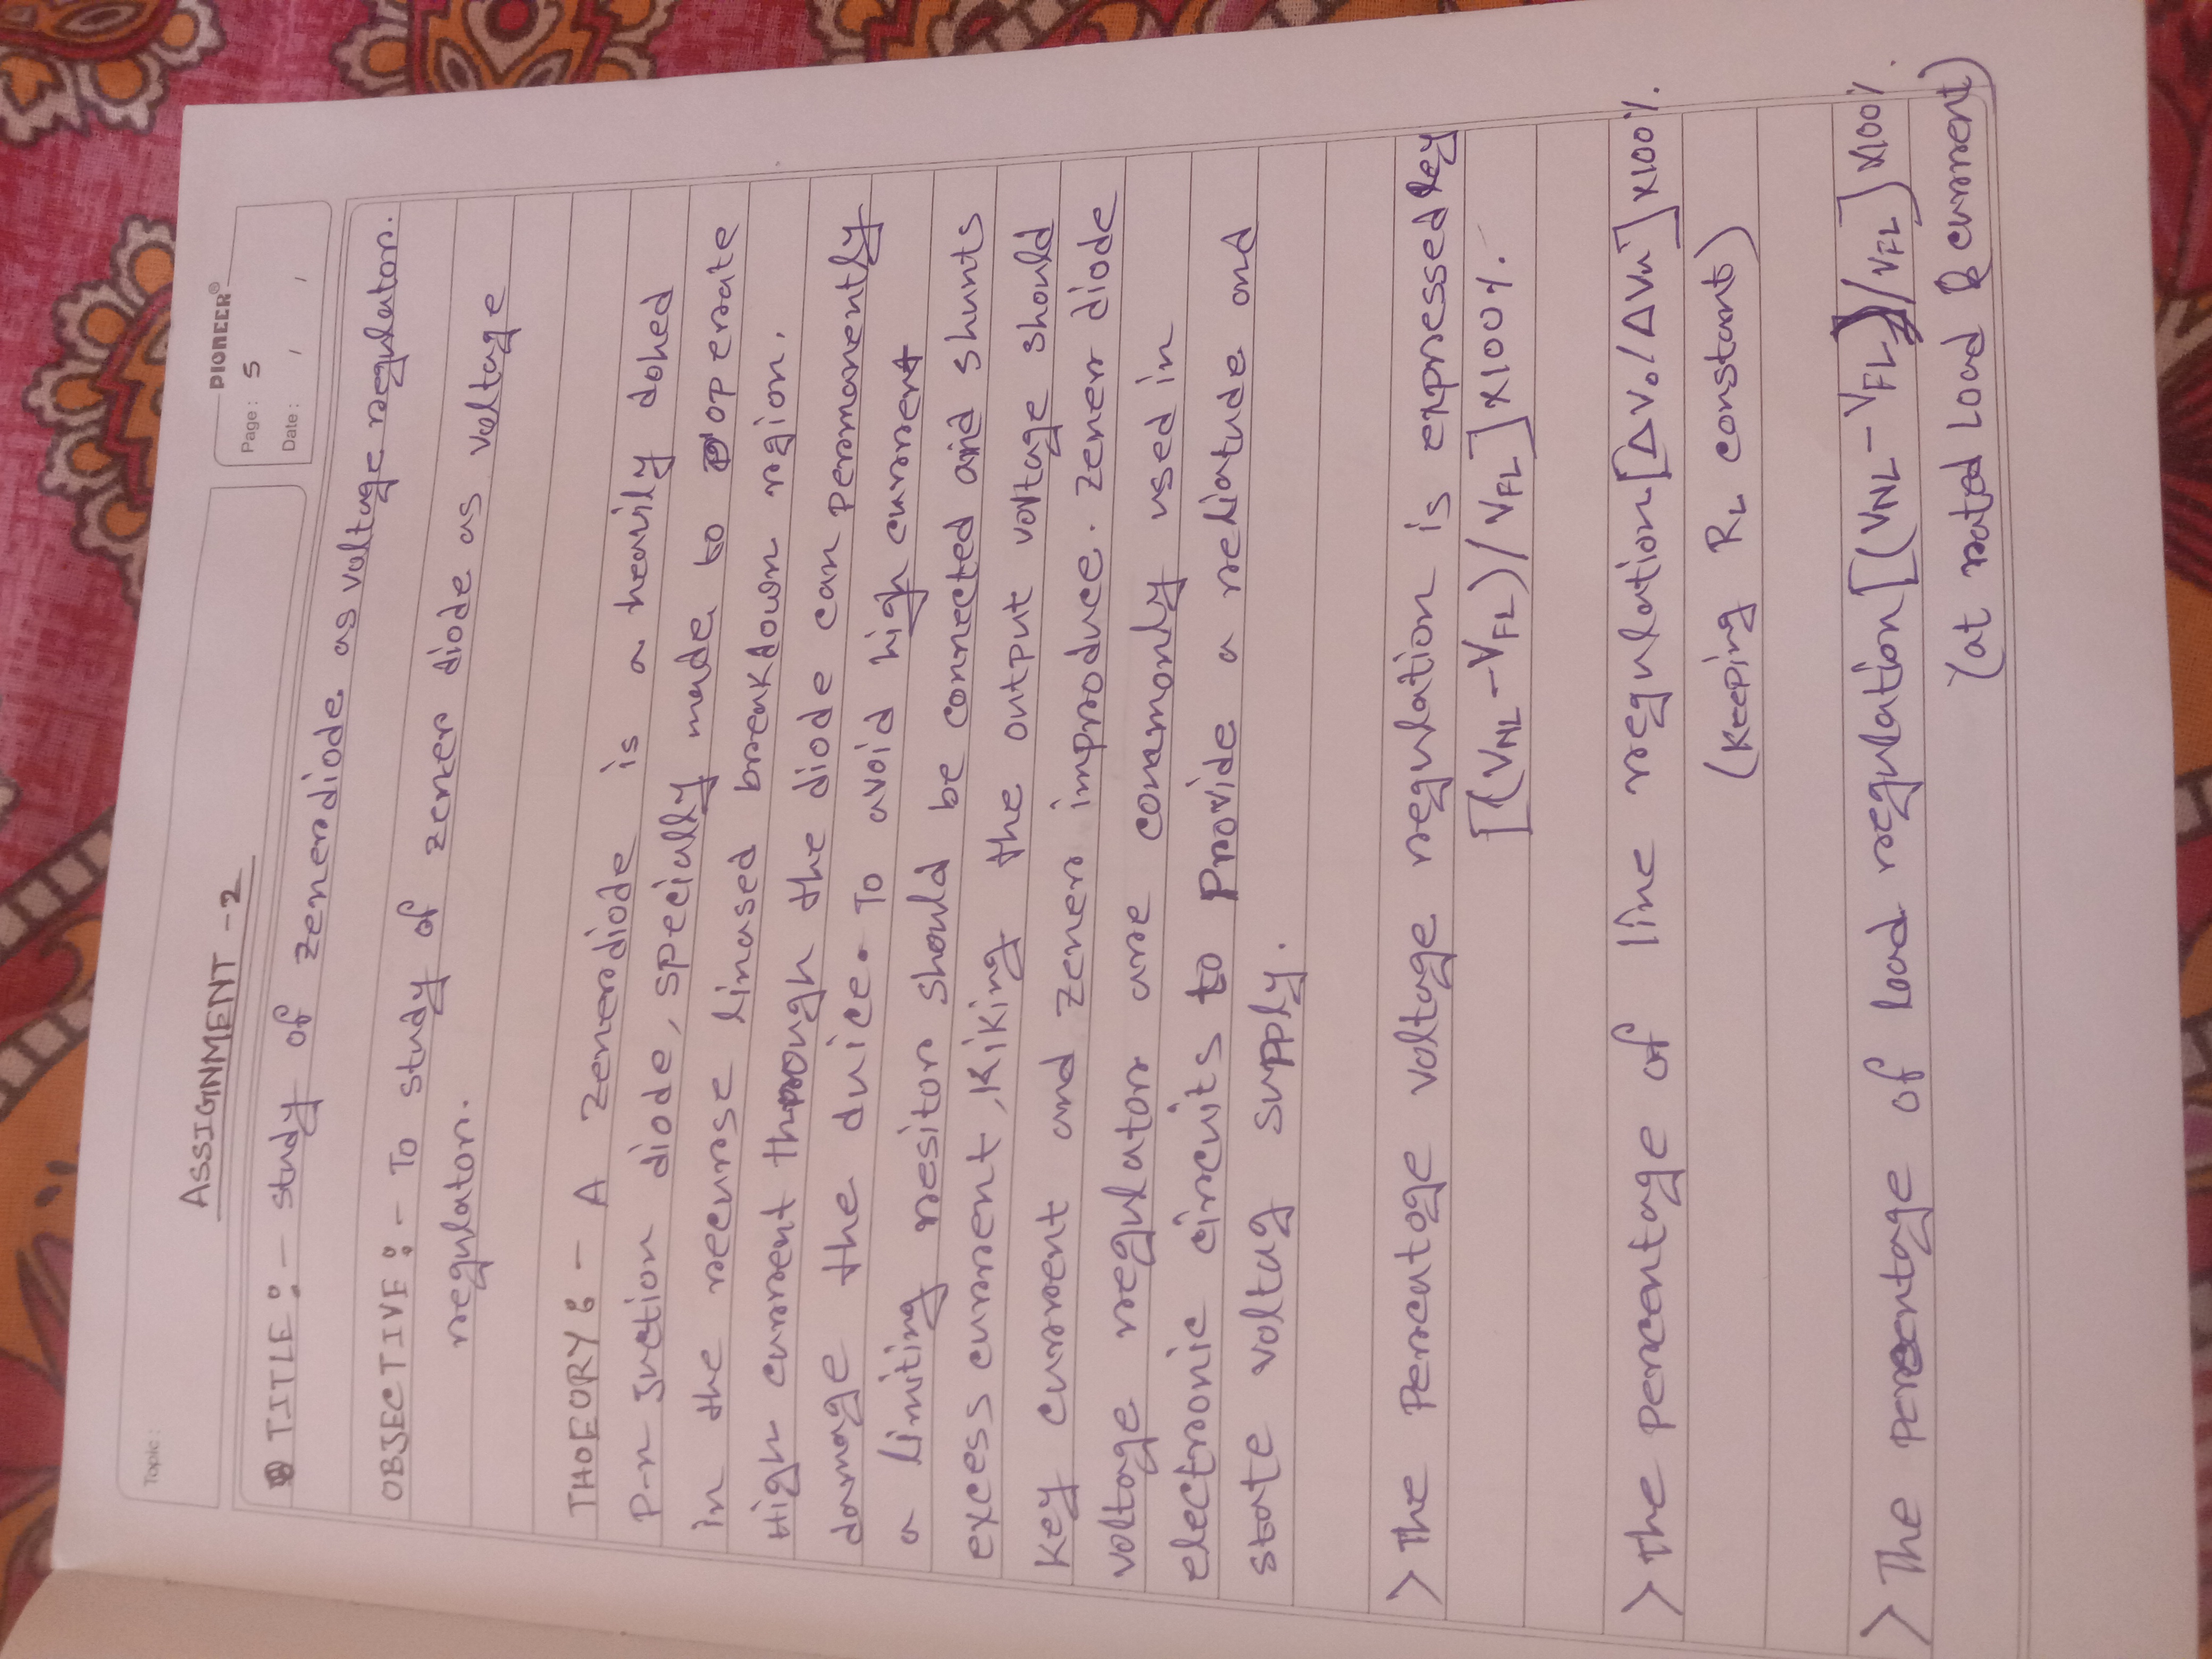 PIONEER®
Topic :
Page : 5
Date : / /
ASSIGNMENT - 2
TITLE :- study of zenerdiode as voltage regulator.
OBJECTIVE :- To study of zener diode as voltage
regulator.
THOEORY :- A zenerdiode is a heavily dohed
P-n Juction diode, specially made to operate
in the recurse linased breakdown rgion.
High current through the diode can permanently
damage the duice. To avoid high current
a limiting resitor should be connected and shunts
excess current, Kiking the output voltage should
key current and zener improduce. zener diode
voltage regulator are conamonly used in
electronic circuits to Provide a reliatude and
state voltag supply.
> The Percutage voltage regulation is expressed key
[(VNL - VFL) / VFL] x100%.
> The percentage of line regulation [ΔVo / ΔVn] x100%.
(Keeping RL constant)
> The percentage of load regulation [(VNL - VFL) / VFL] x100%.
(at rated Load current)